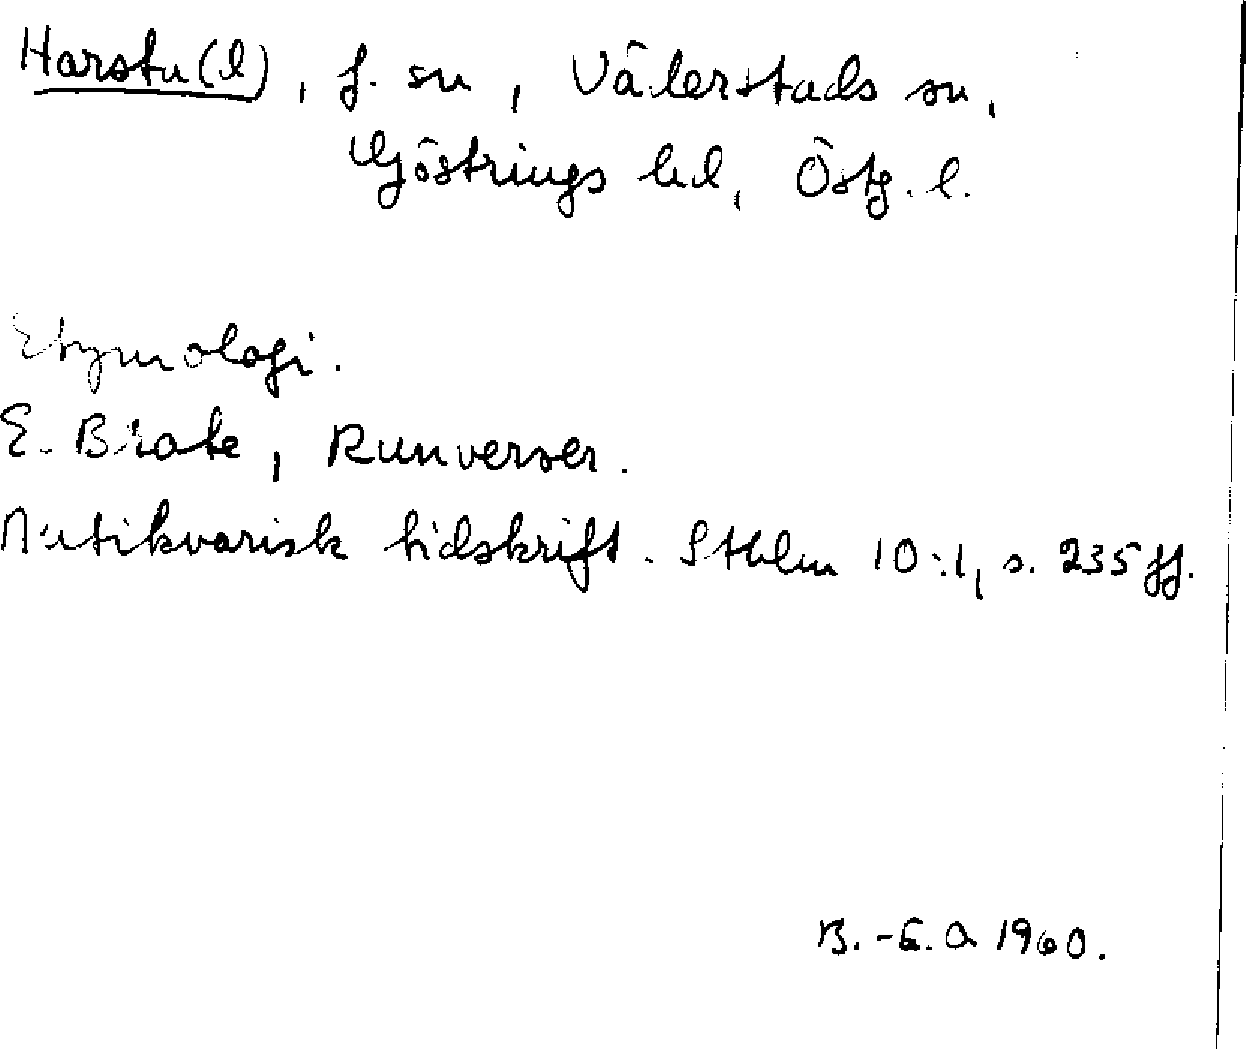 Harstu(l), f. sn, Väderstads sn,
Göstrings hd, Östg. l.
Etymologi.
E. Brate, Runverser.
Antikvarisk tidskrift. Sthlm 10:1, s. 235 ff.
B.-E. O 1960.